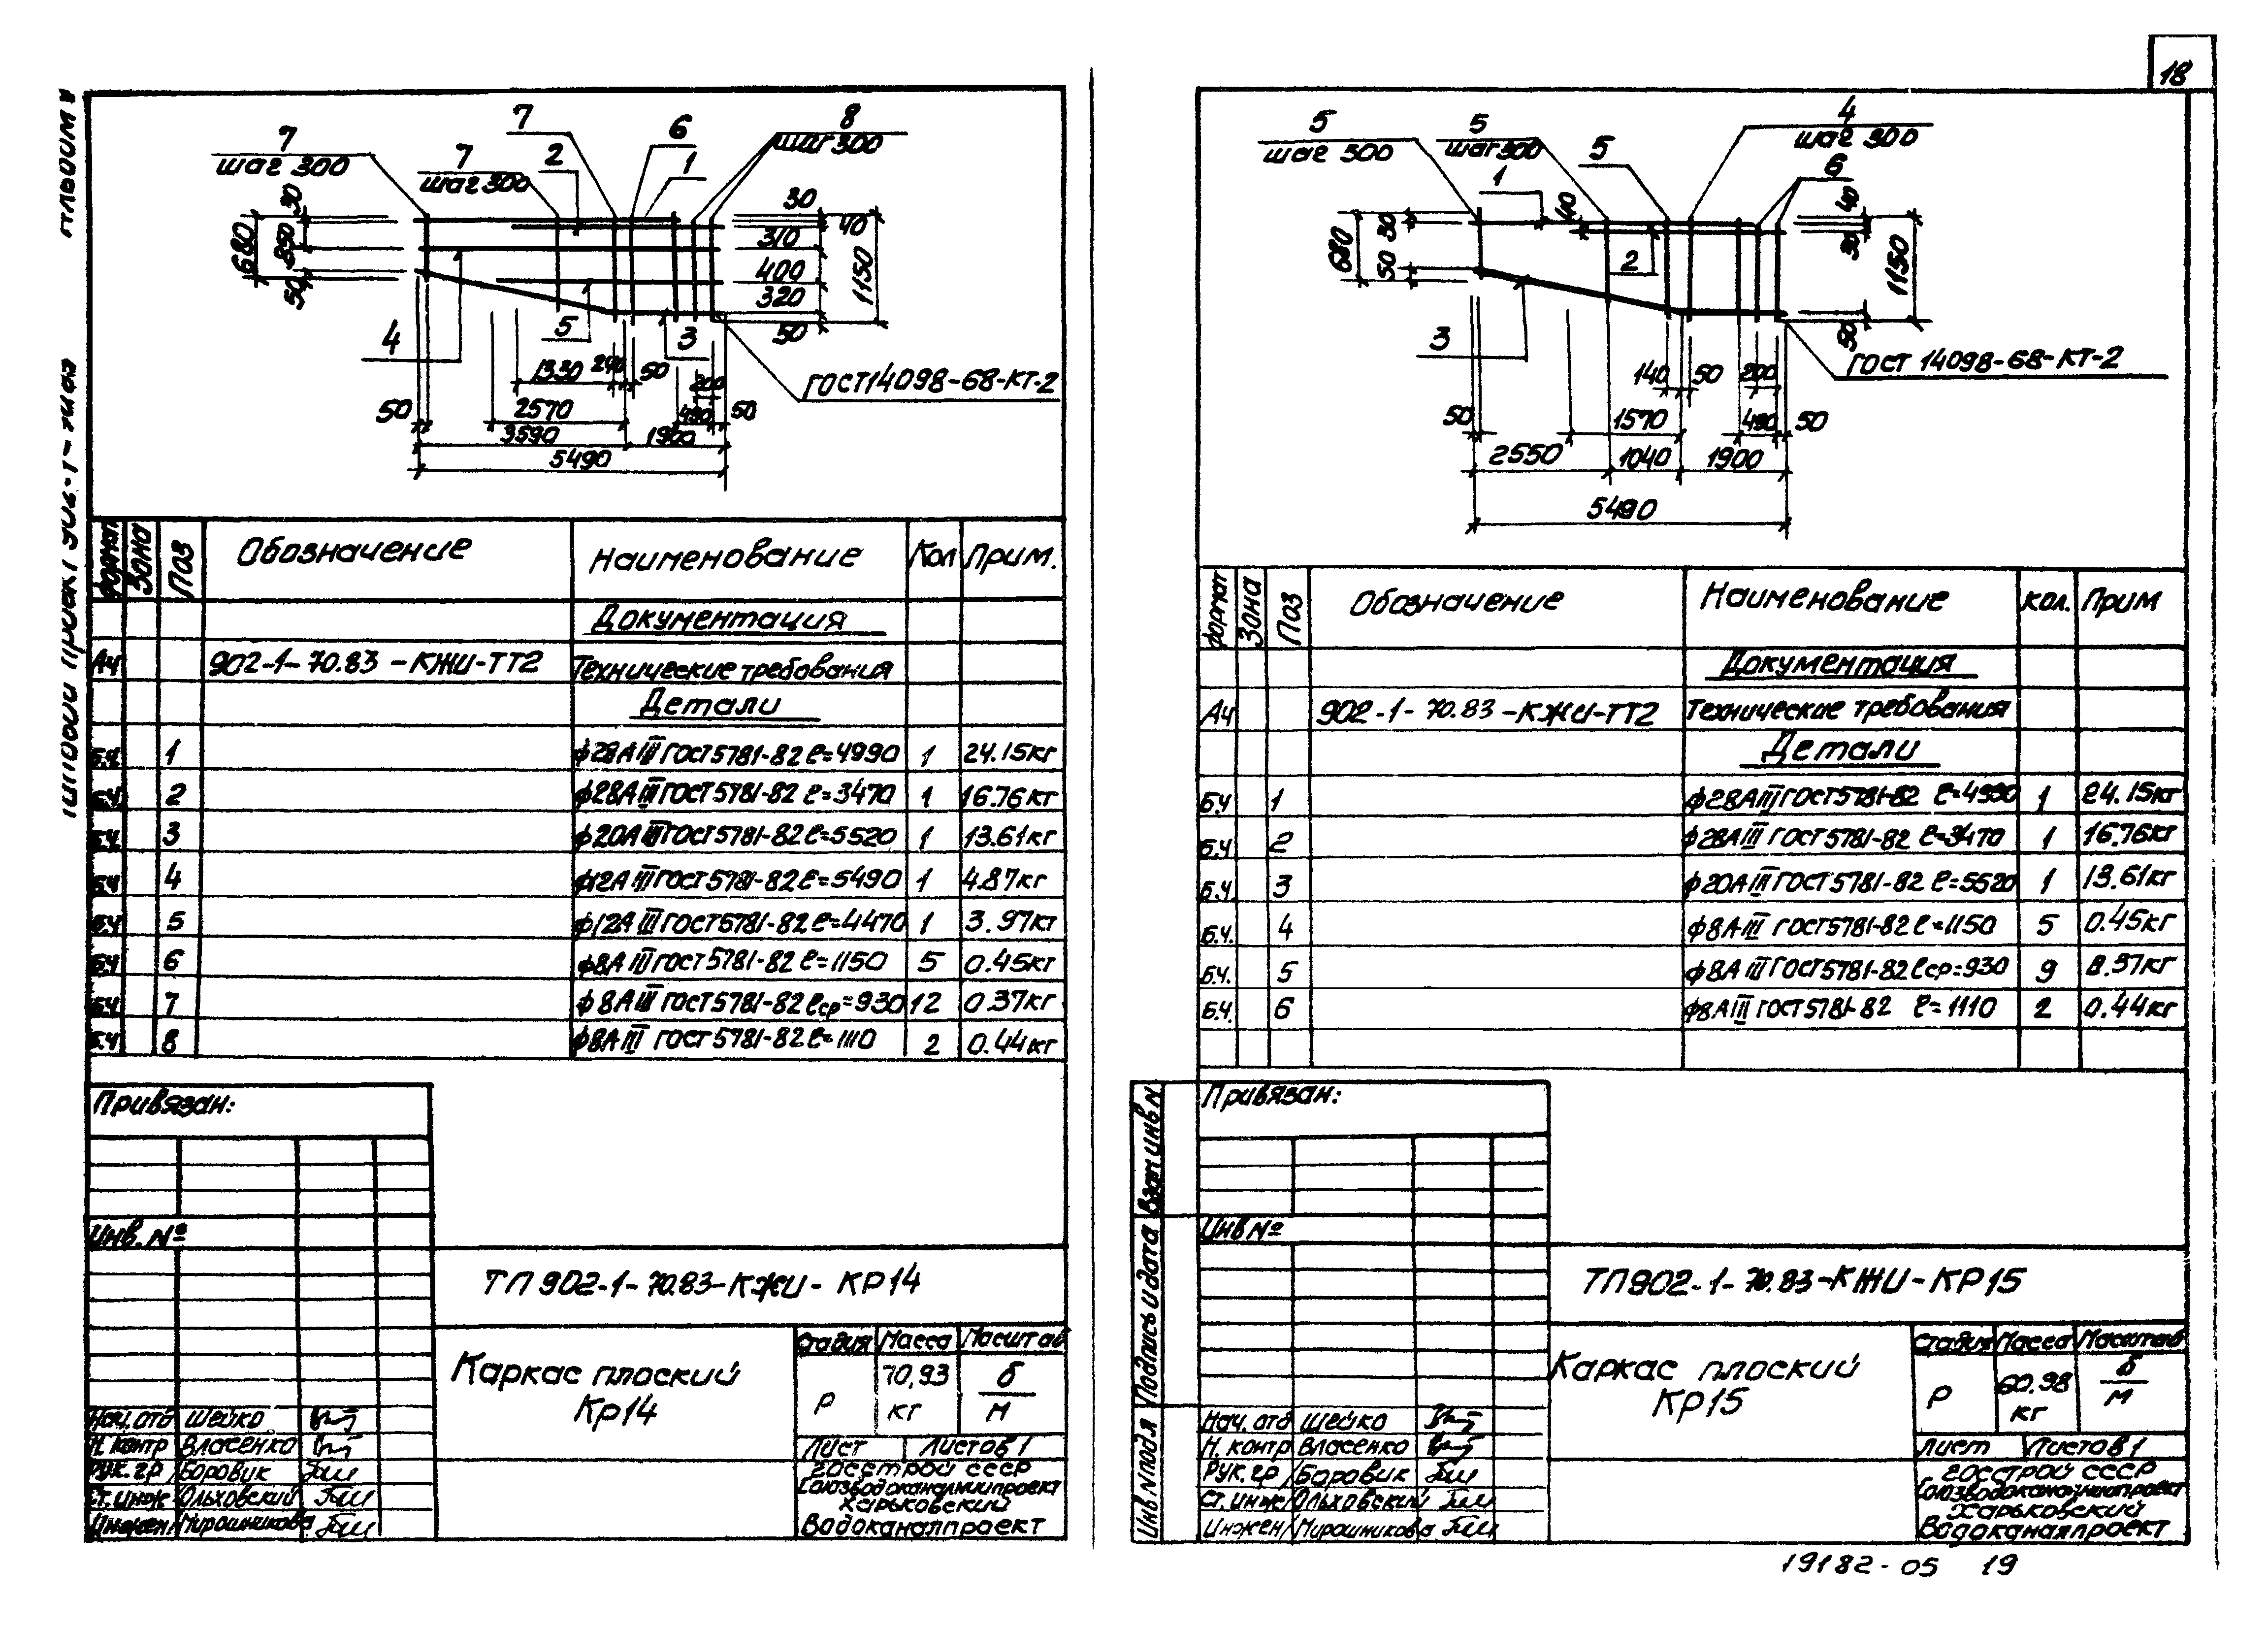 18
7
шаг 300
7
шаг 300
7
2
6
1
8
шаг 300
680
30
850
50
30
40
310
400
320
50
1150
4
5
3
1330
240
50
200
ГОСТ14098-68-КТ-2
50
2570
490
50
3590
1900
5490
Формат
Зона
Поз
Обозначение
Наименование
Кол
Прим.
Документация
А4 902-1-70.83-КЖИ-ТТ2 Технические требования
Детали
Б.Ч 1 ф28АIII ГОСТ5781-82 ℓ=4990 1 24.15кг
Б.Ч 2 ф28АIII ГОСТ5781-82 ℓ=3470 1 16.76кг
Б.Ч 3 ф20АIII ГОСТ5781-82 ℓ=5520 1 13.61кг
Б.Ч 4 ф12АIII ГОСТ5781-82 ℓ=5490 1 4.87кг
Б.Ч 5 ф12АIII ГОСТ5781-82 ℓ=4470 1 3.97кг
Б.Ч 6 ф8АIII ГОСТ5781-82 ℓ=1150 5 0.45кг
Б.Ч 7 ф8АIII ГОСТ5781-82 ℓср=930 12 0.37кг
Б.Ч 8 ф8АIII ГОСТ5781-82 ℓ=1110 2 0.44кг
Привязан:
Инв.№
ТП902-1-70.83-КЖИ-КР14
Каркас плоский
Кр14
Стадия Масса Масштаб
Р 70,93 кг б/м
Лист Листов 1
Госстрой СССР
Союзводоканалниипроект
Харьковский
Водоканалпроект
Нач. отд Шейко
Н. контр Власенко
Рук. гр Боровик
Ст. инж Ольховский
Инжен Мирошникова
5
шаг 300
5
шаг 300
5
4
шаг 300
6
1
40
2
680
30
50
40
30
1150
50
3
140
50
200
ГОСТ 14098-68-КТ-2
50
1570
490
50
2550
1040
1900
5490
Формат
Зона
Поз
Обозначение
Наименование
кол.
Прим
Документация
А4 902-1-70.83-КЖИ-ТТ2 Технические требования
Детали
Б.Ч 1 ф28АIII ГОСТ5781-82 ℓ=4990 1 24.15кг
Б.Ч 2 ф28АIII ГОСТ5781-82 ℓ=3470 1 16.76кг
Б.Ч. 3 ф20АIII ГОСТ5781-82 ℓ=5520 1 13.61кг
Б.Ч. 4 ф8АIII ГОСТ5781-82 ℓ=1150 5 0.45кг
Б.Ч. 5 ф8АIII ГОСТ5781-82 ℓср=930 9 0.37кг
Б.Ч. 6 ф8АIII ГОСТ5781-82 ℓ=1110 2 0.44кг
Привязан:
Инв №
Взам инв N
Подпись и дата
Инв N подл
ТП902-1-70.83-КЖИ-КР15
Каркас плоский
КР15
Стадия Масса Масштаб
Р 60.98 кг б/м
Лист Листов 1
Госстрой СССР
Союзводоканалниипроект
Харьковский
Водоканалпроект
Нач. отд Шейко
Н. контр Власенко
Рук. гр Боровик
Ст. инж Ольховский
Инжен Мирошникова
19182-05 19